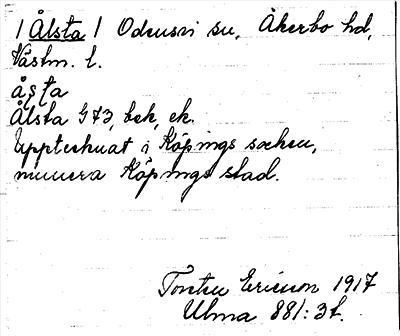 / Ålsta / Odensvi sn, Åkerbo hd,
Västm. l.
åsta
Ålsta 973, bek, ek.
Upptecknat i Köpings socken,
numera Köpings stad.
Torsten Ericson 1917
Ulma 881:3